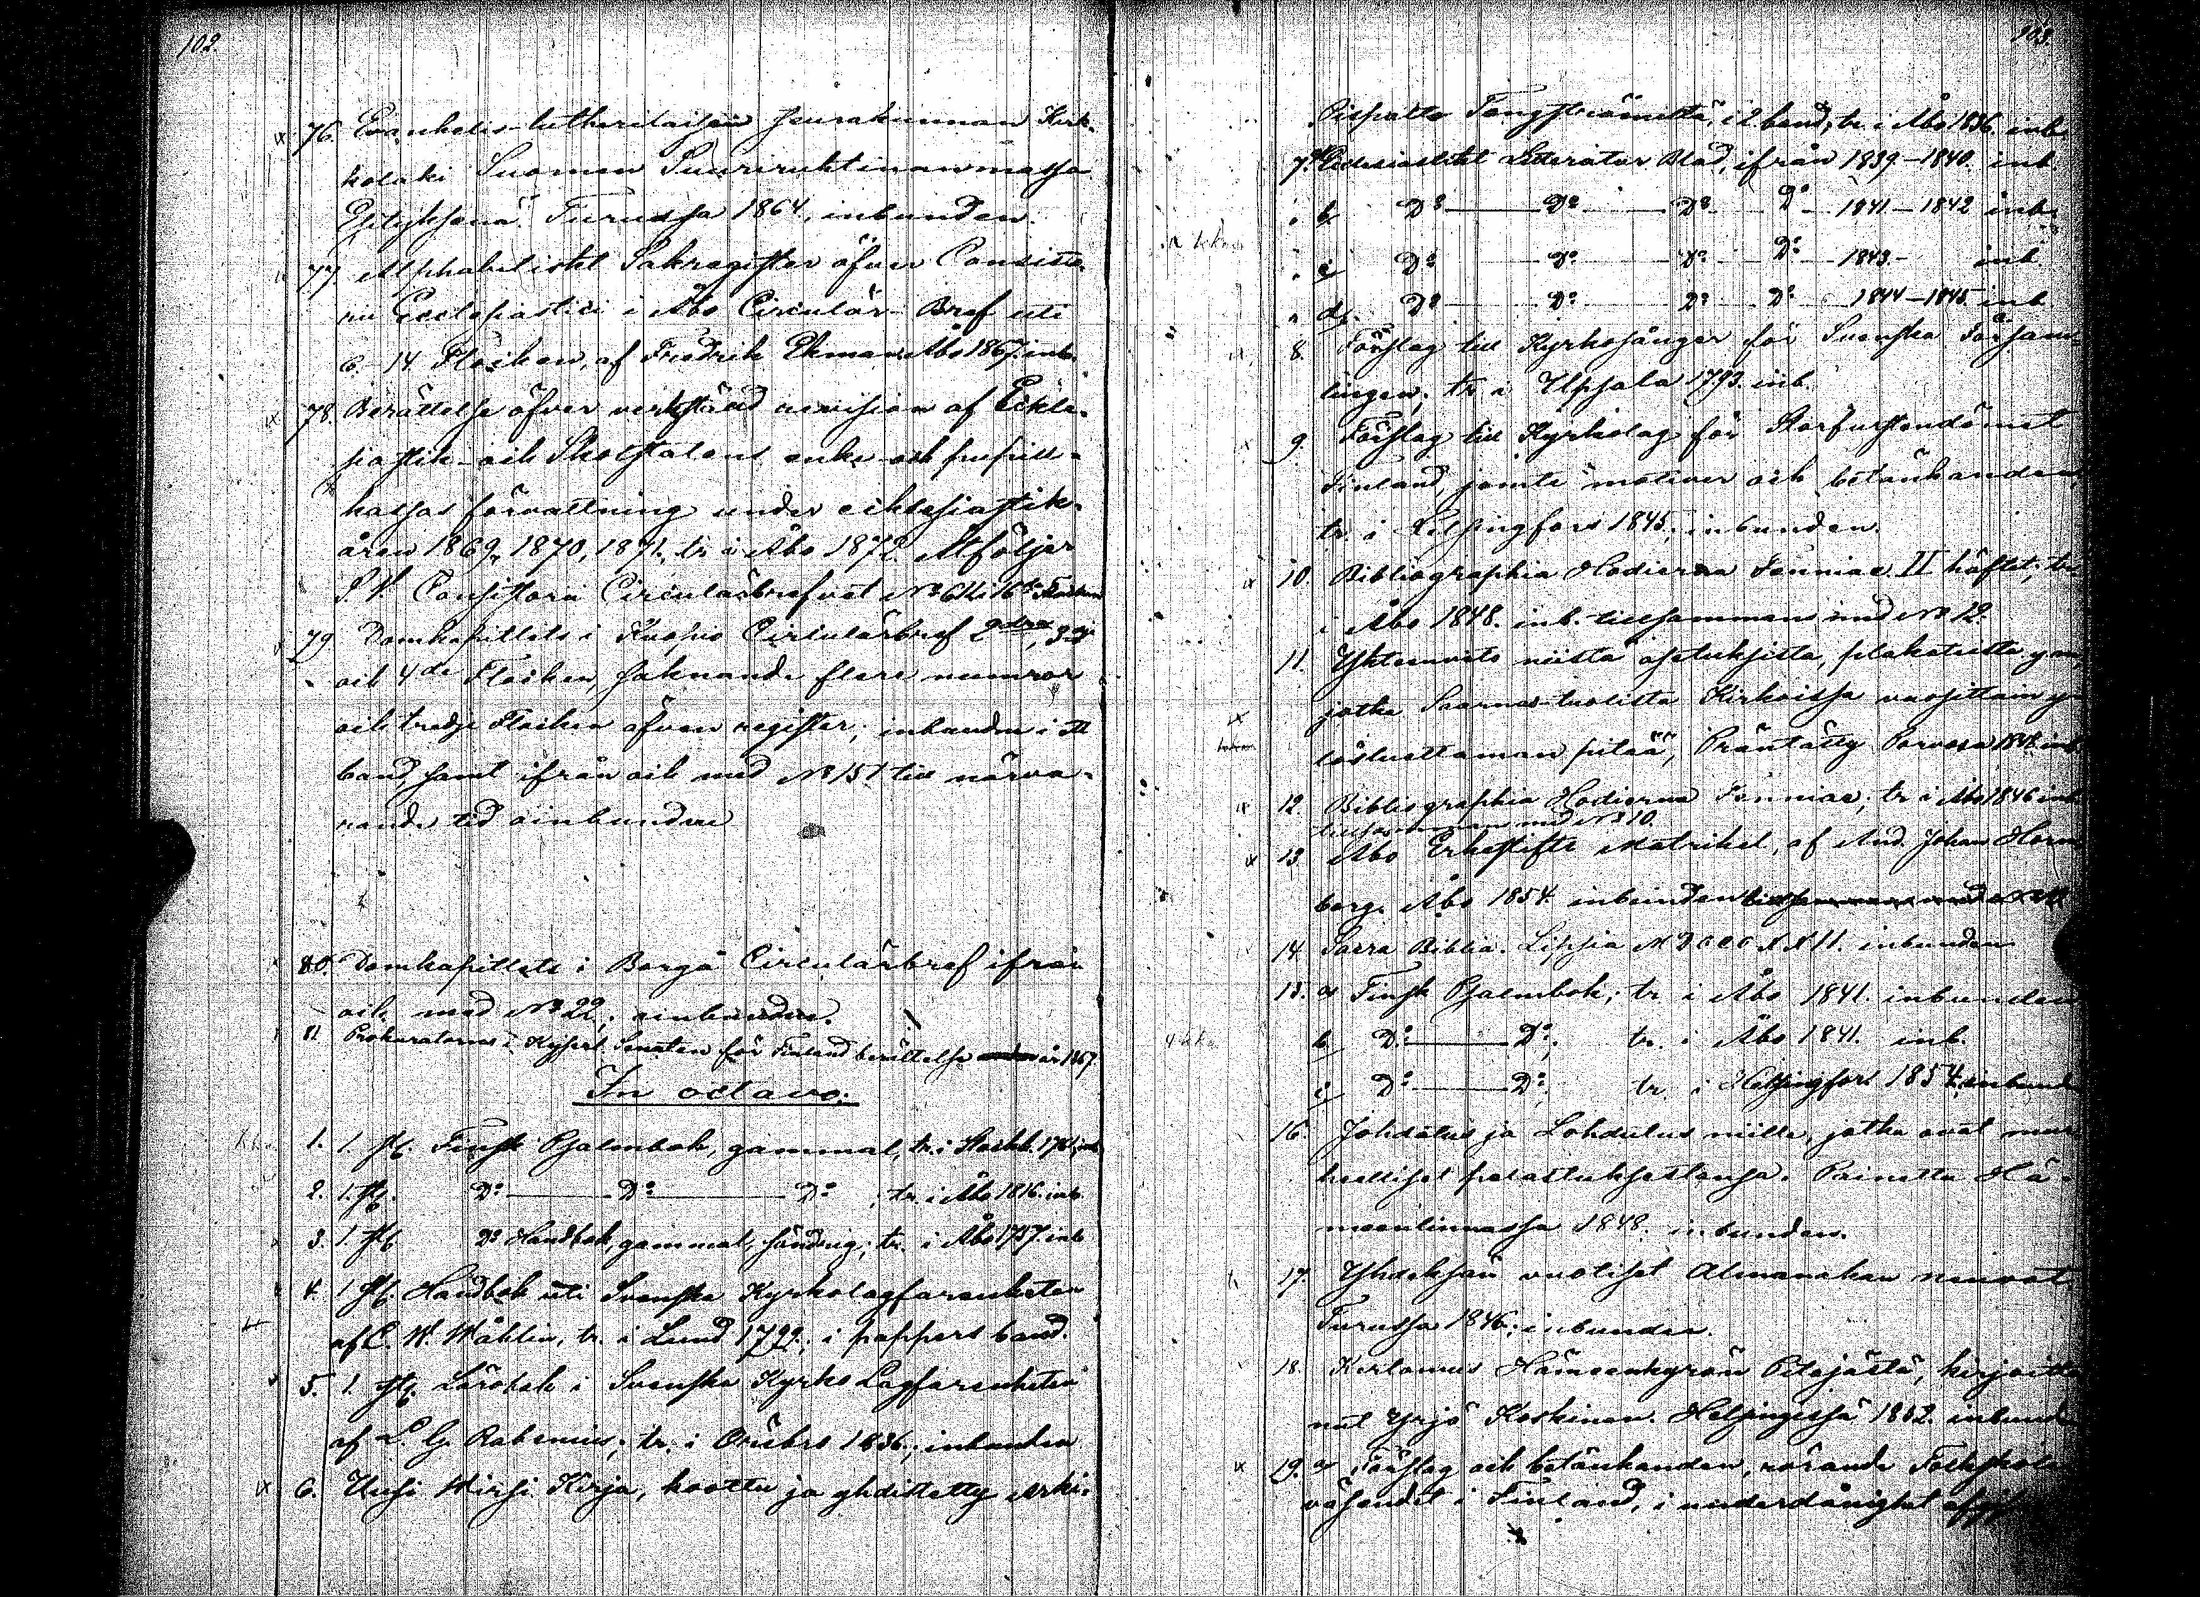 102.
76. Evankelis-lutherilaisen Seurakunnan Kirk-
kolaki Suomen Suuriruhtinanmaassa
Turussa 1864, inbunden.
77. Alphabetiskt Sakregister öfver Consisto-
rii Ecclesiastici i Åbo Circulär-Bref uti
6-14 Flocken, af Fredrik Ekman. Åbo 1867. inb.
78. Berättelse öfver verkställd revision af Eckle-
siastik- och Skolstatens enke- och pupill-
kassas förvaltning under eklesiastik-
åren 1869, 1870, 1871. tr. i Åbo 1872. Åtföljer
S. V. Consistorii Circulärbrefvet No 611 i 16de Flocken
79. Domkapitlets i Kuopio Circulärbref 2dra, 3dje
och 4de Flocken, saknande flere numror
och tredje Flocken äfven register; inbundna i ett
band, samt ifrån och med No 151 till närva-
rande tid oinbundne
80. Domkapitlets i Borgå Circulärbref ifrån
och med No 22; oinbundne.
81. Prokuratorns i Kejserl. Senaten för Finland berättelse år 1867.
In octavo.
1. 1. st. Finsk Psalmbok, gammal, tr. i Stockh. 1701, inb.
2. 1. st. Do Do Do; tr. i Åbo 1816. inb.
3. 1. st. Do Handbok, gammal, söndrig; tr. i Åbo 1757. inb.
4. 1 st. Handbok uti Svenska Kyrkolagfarenheten
af C. W. Wåhlin, tr. i Lund 1792; i pappers band.
5. 1. st. Lärobok i Svenska Kyrko Lagfarenheten
af L. G. Rabenius; tr. i Örebro 1836; inbunden
6. Uusi Wirsi Kirja, koottu ja yhdistetty Arki-
103.
Pispalta Tengströmiltä, i 2 band; tr. i Åbo 1836. inb.
7. a Ecclesiastikt Litteratur Blad, ifrån 1839-1840. inb.
b Do Do Do Do 1841-1842 inb.
c Do Do Do Do 1843- inb.
d. Do Do Do Do 1844-1845 inb.
8. Förslag till Kyrkosånger för Svenska Försam-
lingen; tr. i Upsala 1793. inb.
9. Förslag till Kyrkolag för Storfurstendömet
Finland, jemte motiver och betänkanden;
tr. i Helsingfors 1845; inbunden.
10. Bibliographia Hodierna Fenniae. II häftet; tr.
i Åbo 1848. inb. tillsammans med No 12.
11. Yhteenveto niistä asetuksista, plakateista y.m.
jotka Saarna-tuolista Kirkoissa vuosittain y-
lösluettaman pitää; Präntätty Porvossa 1848. inb.
12. Bibliographia Hodierna Fenniae; tr. i Åbo 1846 inb.
tillsammans med No 10.
13. Åbo Erkestifts Matrikel, af And. Johan Horn-
borg. Åbo 1854. inbunden
14. Sacra Biblia. Lipsia inbunden
15. a Finsk Psalmbok; tr. i Åbo 1841. inbunden
b Do Do; tr. i Åbo 1841. inb.
c Do Do; tr. i Helsingfors 1854; inbund.
16. Johdatus ja Lohdutus niille, jotka ovat mur-
heelliset pelastuksestansa. Painettu Hä-
meenlinnassa 1848. inbunden.
17. Yhdeksän vuotiset Almanakan neuvot,
Turussa 1846; inbunden.
18. Kertomus Hämeenkyrön Pitäjästä, kirjoitta-
nut Yrjö Koskinen. Helsingissä 1852. inbunden
19. a Förslag och betänkanden, rörande Folkskole-
väsendet i Finland, i underdånighet